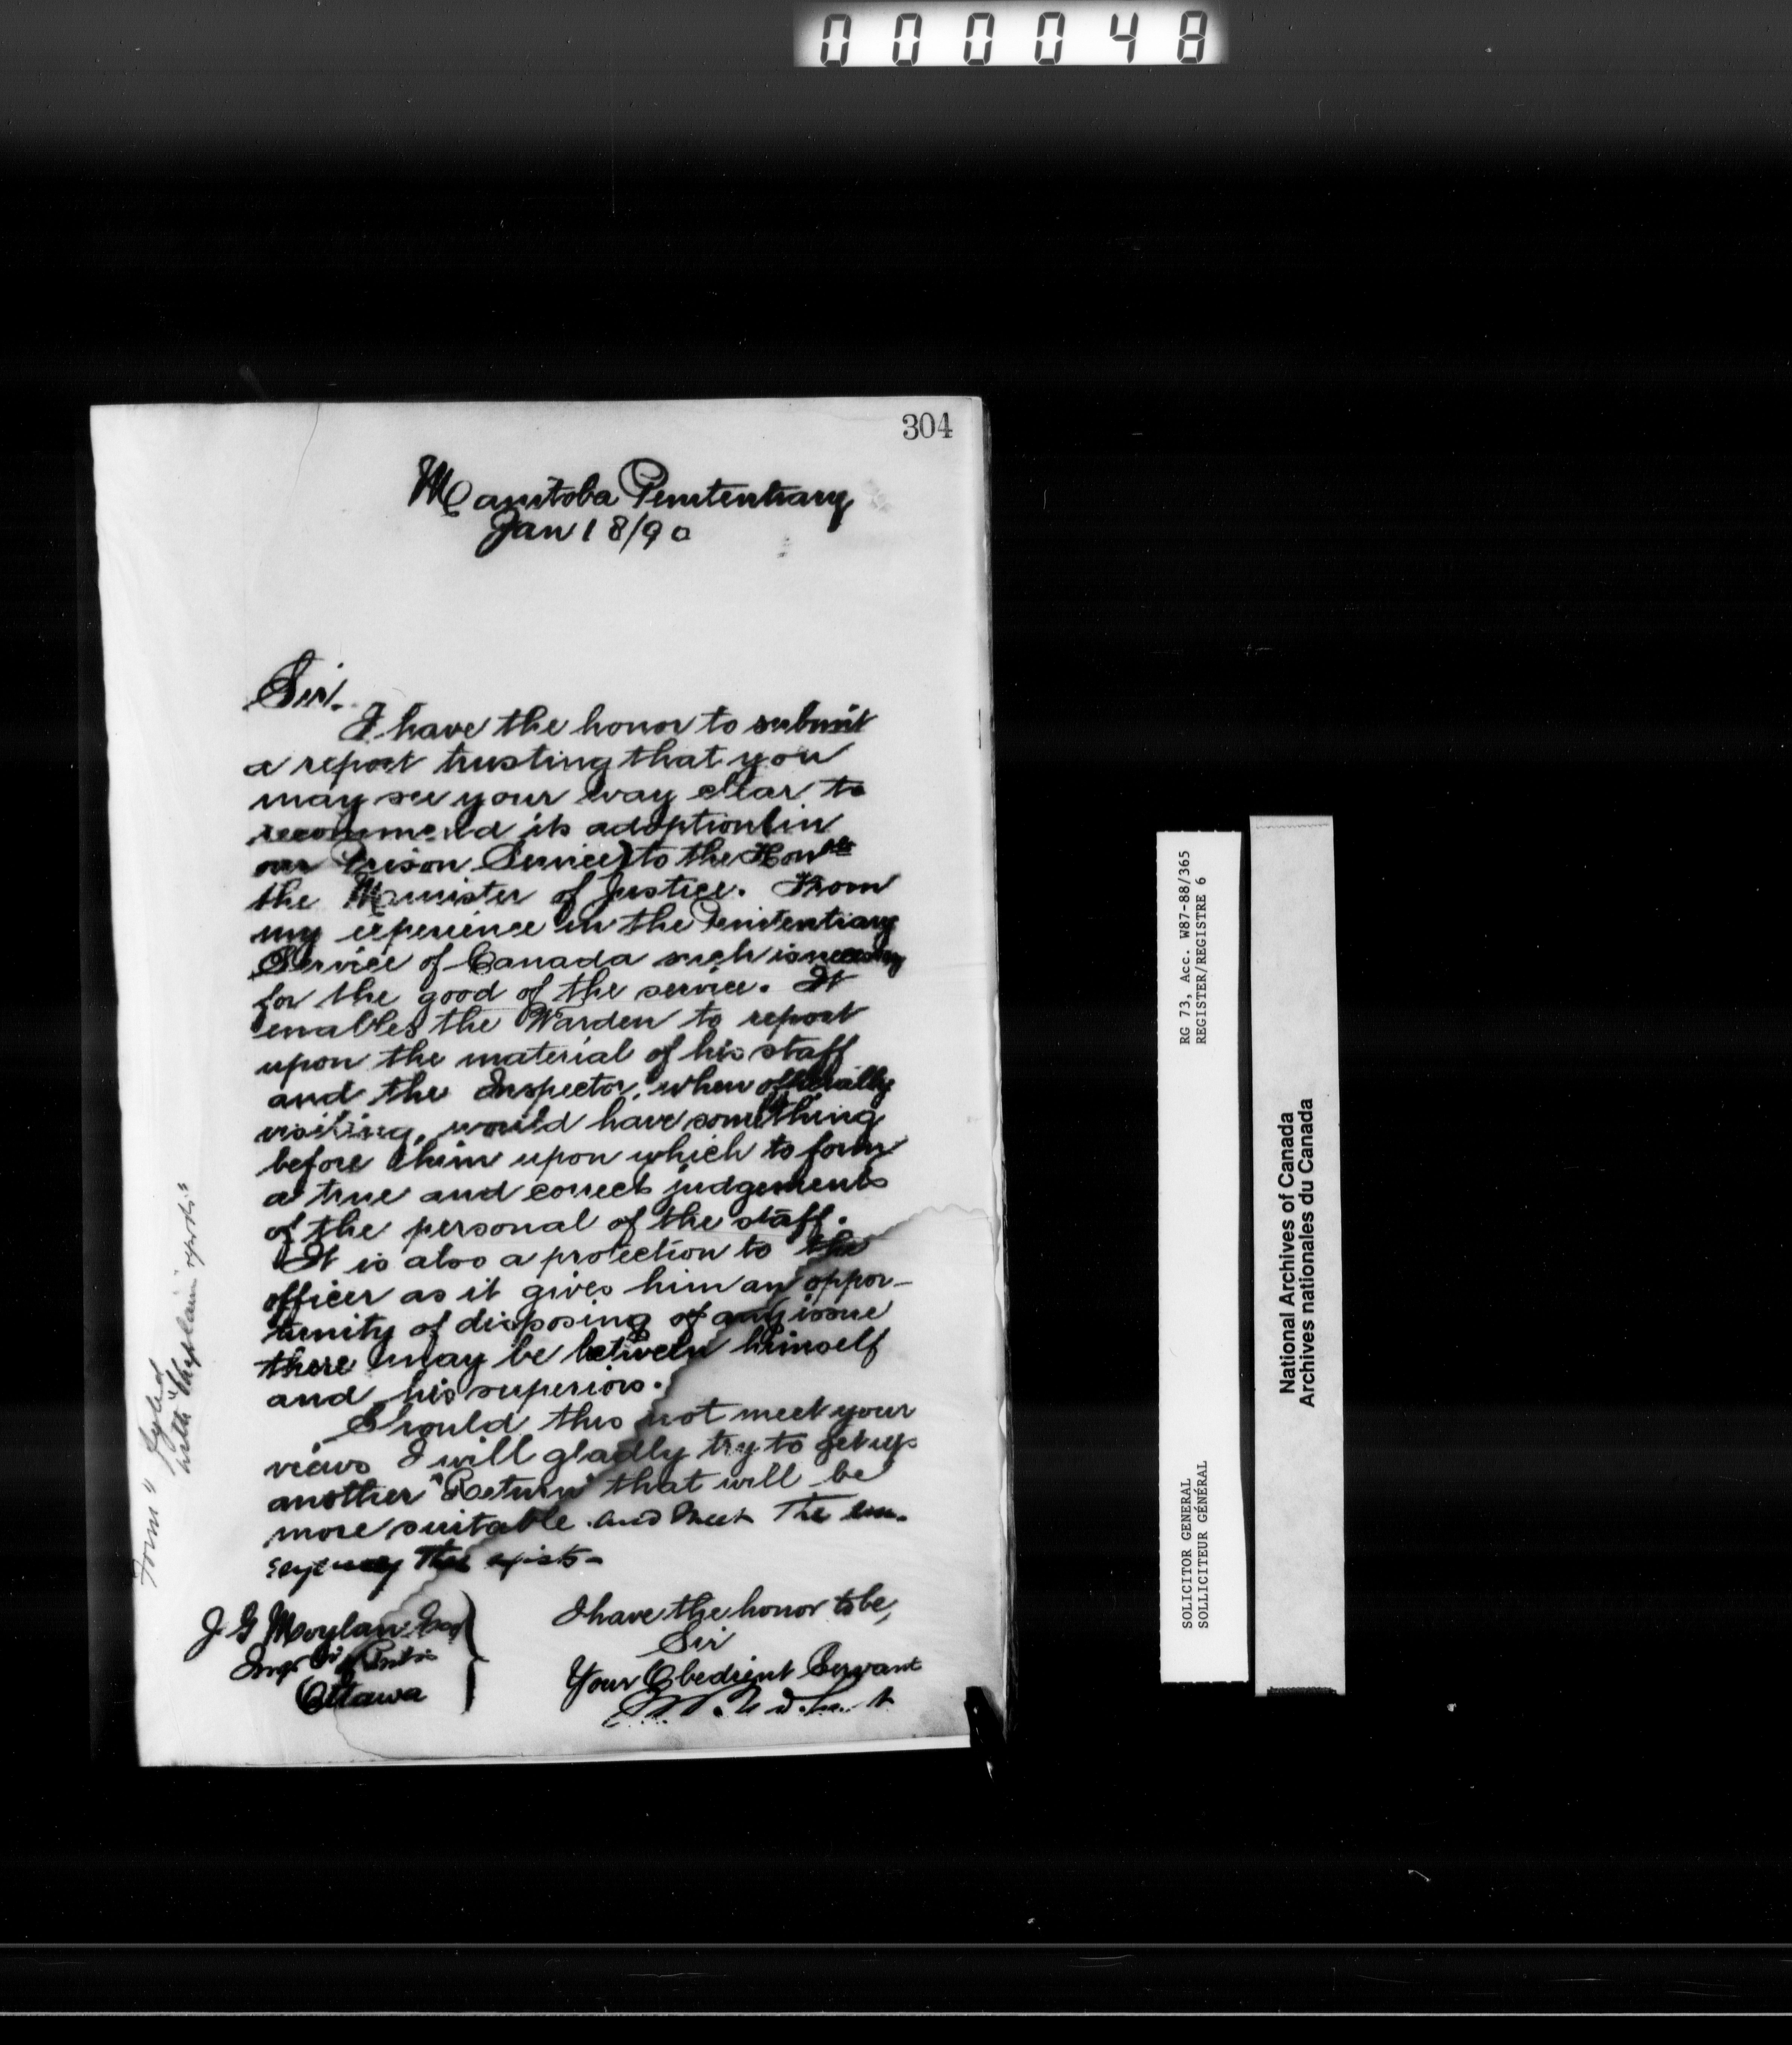 000048
304
Manitoba Penitentiary
Jan 18/90
Sir.
I have the honor to submit
a report trusting that you
may see your way clear to
recommend its adoption (in
our Prison Service) to the Honble
the Minister of Justice. From
my experience in the Penitentiary
Service of Canada such is necessary
for the good of the service. It
enables the Warden to report
upon the material of his staff
and the Inspector, when officially
visiting, would have something
before him upon which to form
a true and correct judgements
of the personal of the staff.
It is also a protection to the
officer as it gives him an oppor-
tunity of disposing of any issue
there may be between himself
and his superiors.
Should this not meet your
views I will gladly try to get up
another "Return" that will be
more suitable and meet the
exists-
I have the honor to be,
Sir
Your Obedient Servant
J G Moylan Esq
Insp of
Ottawa
Form "
with "Chaplain reports"
RG 73, Acc. W87-88/365
REGISTER/REGISTRE 6
SOLICITOR GENERAL
SOLLICITEUR GÉNÉRAL
National Archives of Canada
Archives nationales du Canada